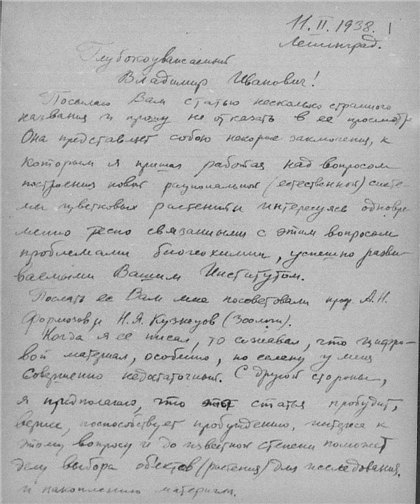 11.II.1938.
Ленинград.
Глубокоуважаемый
Владимир Иванович!
Посылаю Вам статью несколько странного
названия и прошу не отказать в ее просмотре.
Она представляет собою некорые заключения, к
которым я пришел работая над вопросом
построения новой рациональной (естественной) систе-
мы цветковых растений и интересуясь одновре-
менно тесно связанными с этим вопросом
проблемами биогеохимии, успешно разви-
ваемыми Вашим Институтом.
Послать ее Вам мне посоветовали проф. А.Н.
Формозов и Н.Я. Кузнецов (Зоологи).
Когда я ее писал, то сознавал, что цифро-
вой материал, особенно, по селену у меня
совершенно недостаточный. С другой стороны,
я предполагаю, что эта статья пробудит,
вернее, поспособствует пробуждению, интереса к
этому вопросу и до известной степени поможет
делу выбора объектов (растения) для исследования
и накоплению материала.